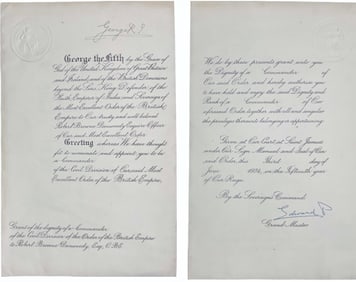 George R.I.
George the Fifth by the Grace of
God of the United Kingdom of Great Britain
and Ireland and of the British Dominions
beyond the Seas King, Defender of the
Faith, Emperor of India and Sovereign of
the Most Excellent Order of the British
Empire to Our trusty and well beloved
Robert Officer
of Our said Most Excellent Order
Greeting Whereas We have thought
fit to nominate and appoint you to be
a Commander
of the Civil Division of Our said Most
Excellent Order of the British Empire
Grant of the dignity of a Commander
of the Civil Division of the Order of the British Empire
to Robert Esq. O.B.E.
We do by these presents grant unto you
the Dignity of a Commander of
Our said Order and hereby authorise you
to have hold and enjoy the said Dignity and
Rank of a Commander of Our
aforesaid Order together with all and singular
the privileges thereunto belonging or appertaining
Given at Our Court at Saint James's
under Our Sign Manual and Seal of Our
said Order this Third day of
June 1924, in the Fifteenth year
of Our Reign
By the Sovereign's Command
Edward P
Grand Master